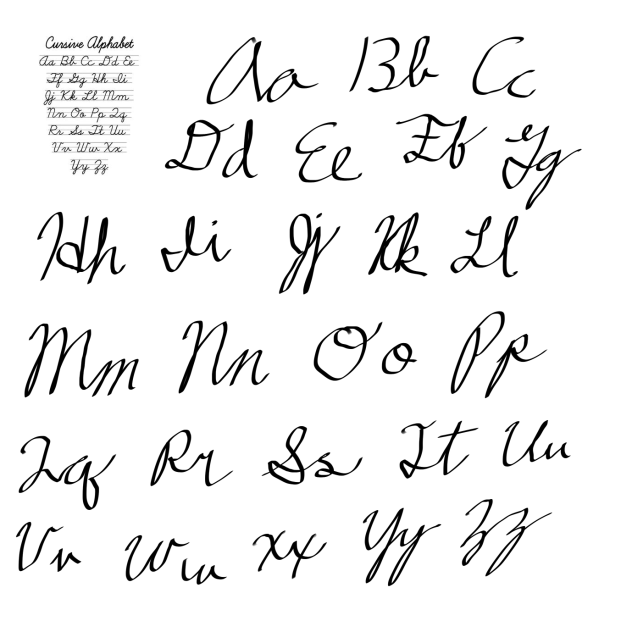 Cursive Alphabet
Aa Bb Cc Dd Ee
Ff Gg Hh Ii
Jj Kk Ll Mm
Nn Oo Pp Qq
Rr Ss Tt Uu
Vv Ww Xx
Yy Zz
Aa Bb Cc
Dd Ee Ff Gg
Hh Ii Jj Kk Ll
Mm Nn Oo Pp
Qq Rr Ss Tt Uu
Vv Ww Xx Yy Zz